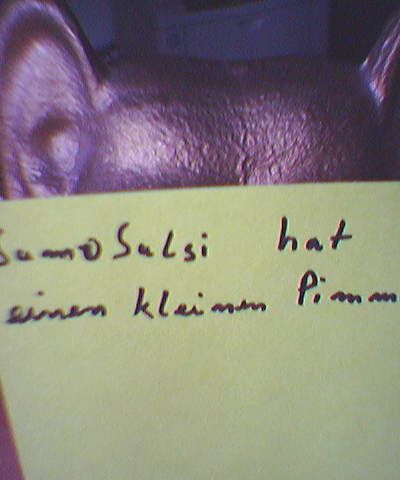 SumoSulsi hat
einen kleinen Pimm